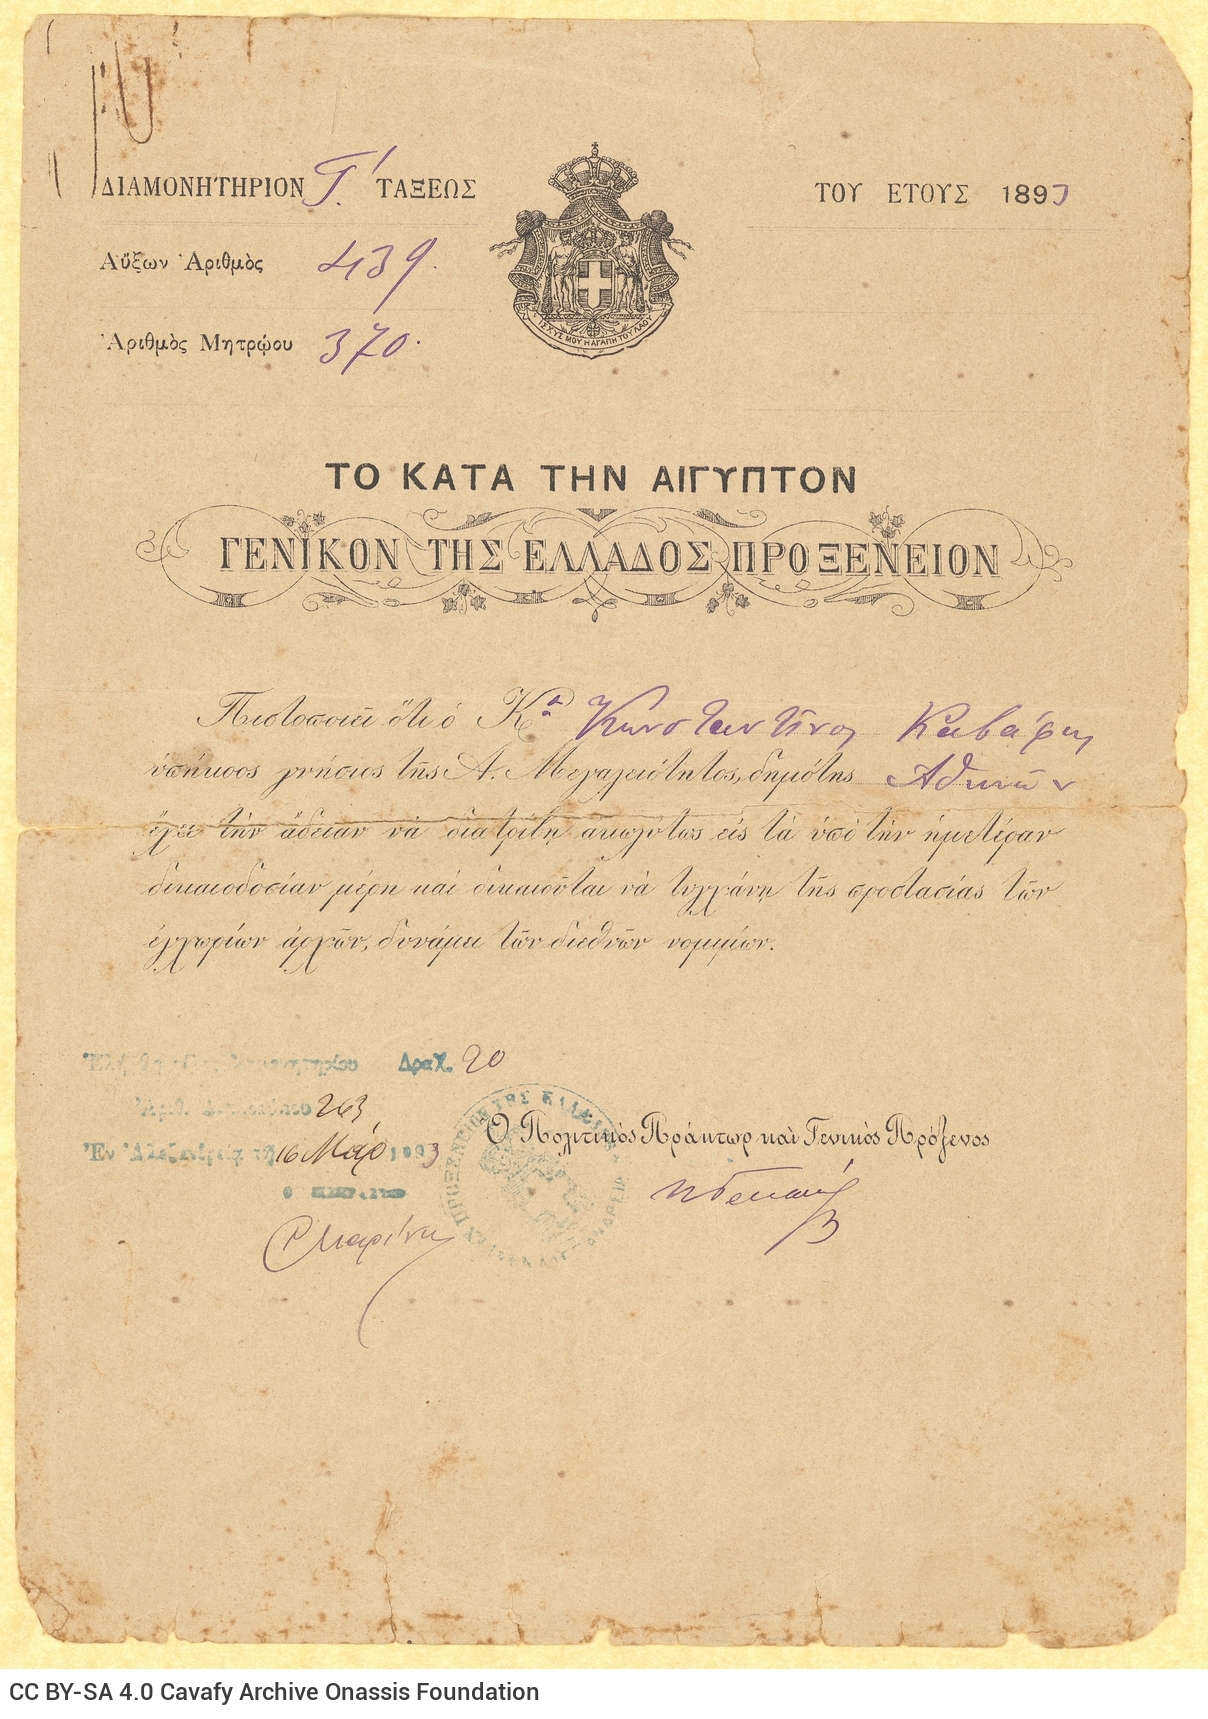 ΔΙΑΜΟΝΗΤΗΡΙΟΝ Γ΄. ΤΑΞΕΩΣ
ΤΟΥ ΕΤΟΥΣ 1893
Αὔξων Ἀριθμὸς 439.
Ἀριθμὸς Μητρῴου 370.
ΙΣΧΥΣ ΜΟΥ Η ΑΓΑΠΗ ΤΟΥ ΛΑΟΥ
ΤΟ ΚΑΤΑ ΤΗΝ ΑΙΓΥΠΤΟΝ
ΓΕΝΙΚΟΝ ΤΗΣ ΕΛΛΑΔΟΣ ΠΡΟΞΕΝΕΙΟΝ
Πιστοποιεῖ ὅτι ὁ Κος Κωνσταντῖνος Καβάφης
ὑπήκοος γνήσιος τῆς Α. Μεγαλειότητος, δημότης Ἀθηνῶν
ἔχει τὴν ἄδειαν νὰ διατρίβῃ ἀκωλύτως εἰς τὰ ὑπὸ τὴν ἡμετέραν
δικαιοδοσίαν μέρη καὶ δικαιοῦται νὰ τυγχάνῃ τῆς προστασίας τῶν
ἐγχωρίων ἀρχῶν, δυνάμει τῶν διεθνῶν νομίμων.
Δραχ. 20
Ἀριθ. 263
Ἐν Ἀλεξανδρείᾳ τῇ 16 Μάρ 1893
Ὁ Πολιτικὸς Πράκτωρ καὶ Γενικὸς Πρόξενος
CC BY-SA 4.0 Cavafy Archive Onassis Foundation